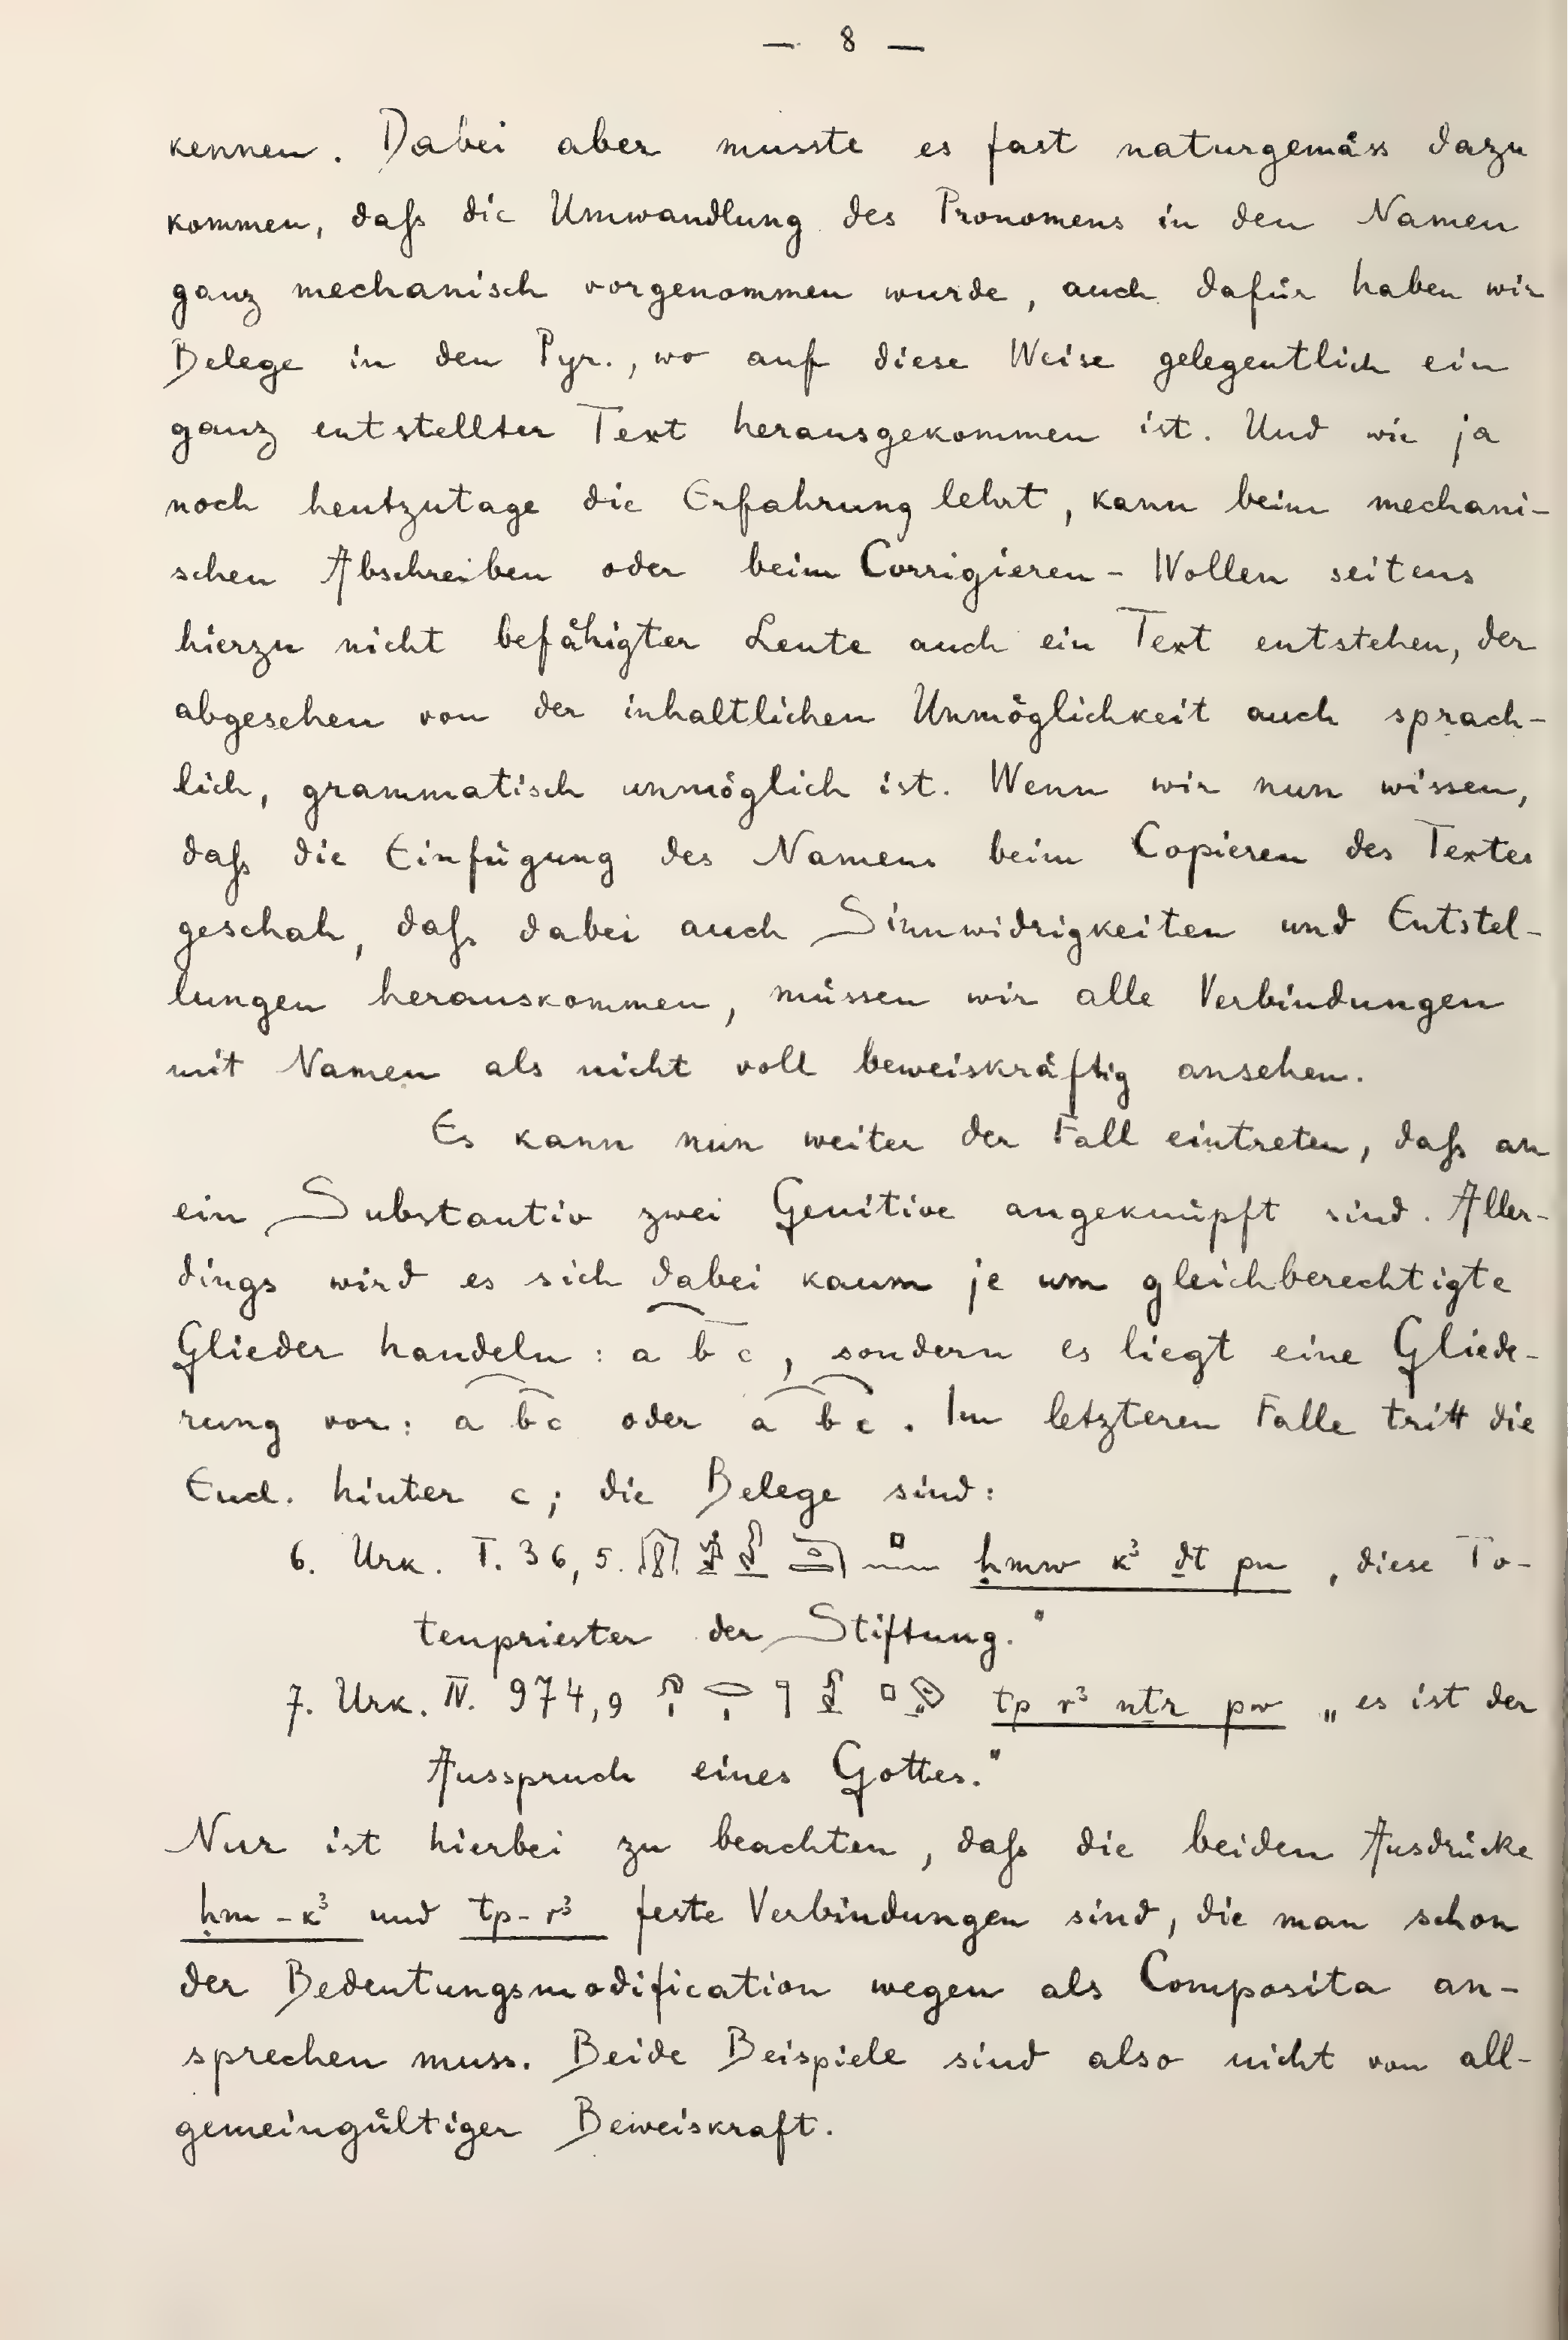 — 8 —
kennen. Dabei aber musste es fast naturgemäss dazu
kommen, daß die Umwandlung des Pronomens in den Namen
ganz mechanisch vorgenommen wurde, auch dafür haben wir
Belege in den Pyr., wo auf diese Weise gelegentlich ein
ganz entstellter Text herausgekommen ist. Und wie ja
noch heutzutage die Erfahrung lehrt, kann beim mechani-
schen Abschreiben oder beim Corrigieren-Wollen seitens
hierzu nicht befähigter Leute auch ein Text entstehen, der
abgesehen von der inhaltlichen Unmöglichkeit auch sprach-
lich, grammatisch unmöglich ist. Wenn wir nun wissen,
daß die Einfügung des Namens beim Copieren des Textes
geschah, daß dabei auch Sinnwidrigkeiten und Entstel-
lungen herauskommen, müssen wir alle Verbindungen
mit Namen als nicht voll beweiskräftig ansehen.
Es kann nun weiter der Fall eintreten, daß an
ein Substantiv zwei Genitive angeknüpft sind. Aller-
dings wird es sich dabei kaum je um gleichberechtigte
Glieder handeln: a b c, sondern es liegt eine Gliede-
rung vor: a b c oder a b c. Im letzteren Falle tritt die
Encl. hinter c; die Belege sind:
6. Urk. I. 36,5. ḥmw kꜣ ḏt pn „diese To-
tenpriester der Stiftung."
7. Urk. IV. 974,9 tp rꜣ nṯr pw „es ist der
Ausspruch eines Gottes."
Nur ist hierbei zu beachten, daß die beiden Ausdrücke
ḥm-kꜣ und tp-rꜣ feste Verbindungen sind, die man schon
der Bedeutungsmodification wegen als Composita an-
sprechen muss. Beide Beispiele sind also nicht von all-
gemeingültiger Beweiskraft.